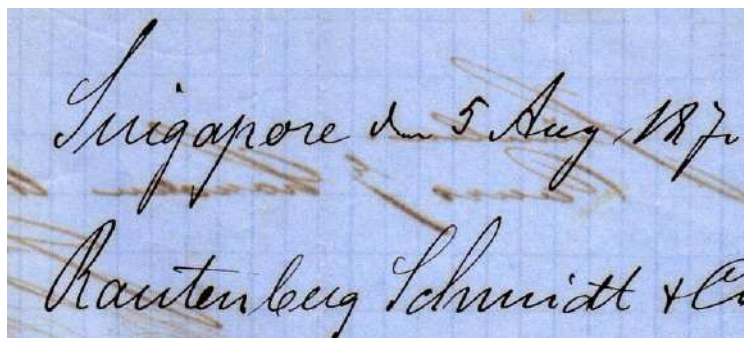 Singapore den 5 Aug. 187
Rautenberg Schmidt & Co